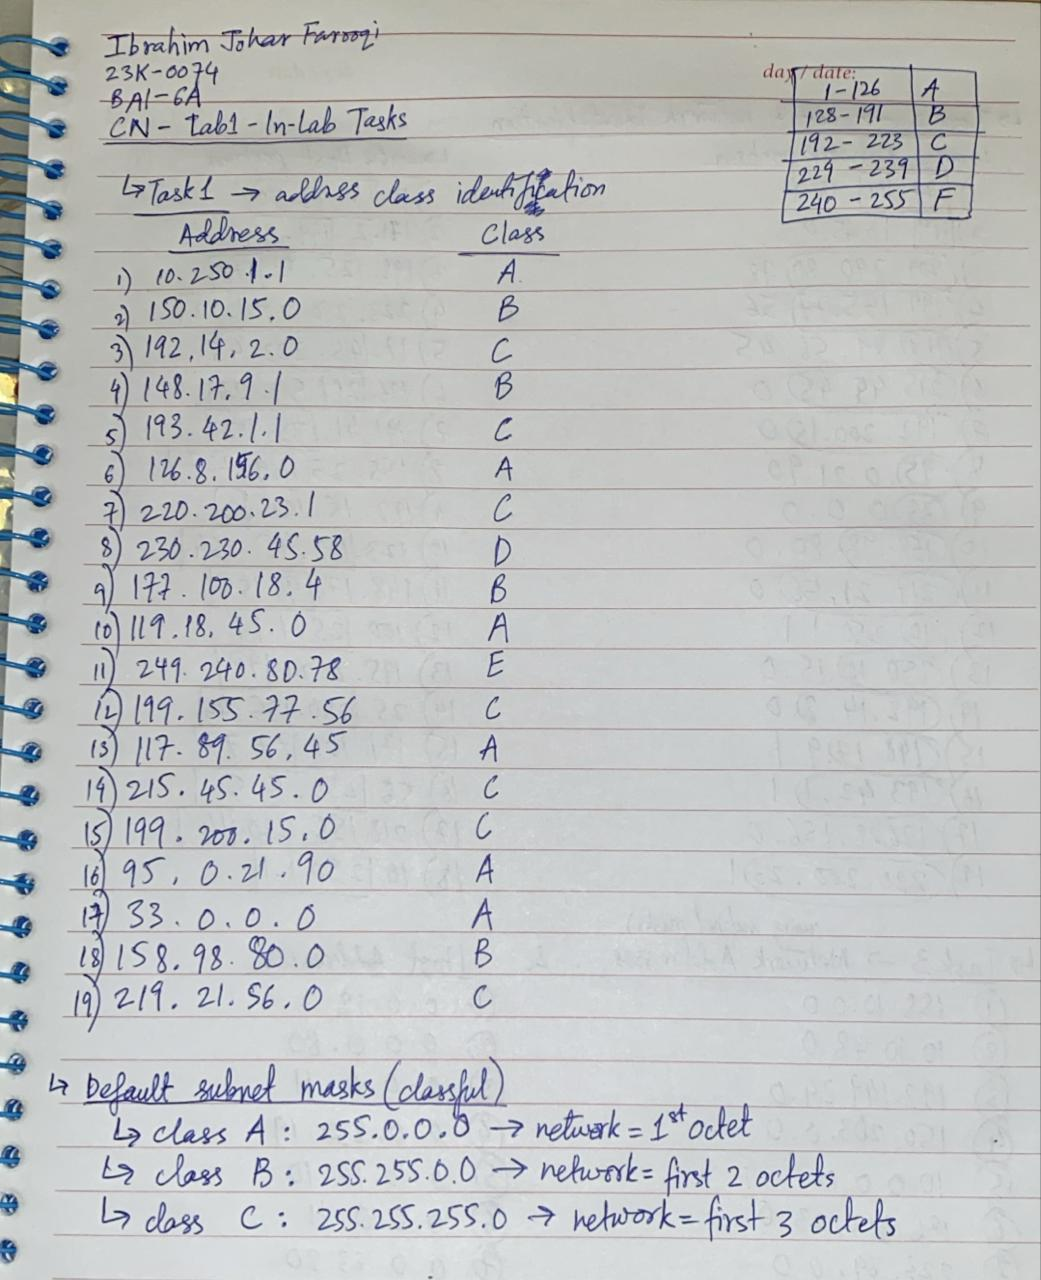 Ibrahim Johar Farooqi
23K-0074
BAI-6A
CN - Lab1 - In-Lab Tasks
day / date:
1-126 A
128-191 B
192-223 C
224-239 D
240-255 F
↳ Task1 → address class identification
Address Class
1) 10.250.1.1 A
2) 150.10.15.0 B
3) 192.14.2.0 C
4) 148.17.9.1 B
5) 193.42.1.1 C
6) 126.8.156.0 A
7) 220.200.23.1 C
8) 230.230.45.58 D
9) 177.100.18.4 B
10) 119.18.45.0 A
11) 249.240.80.78 E
12) 199.155.77.56 C
13) 117.89.56.45 A
14) 215.45.45.0 C
15) 199.200.15.0 C
16) 95.0.21.90 A
17) 33.0.0.0 A
18) 158.98.80.0 B
19) 219.21.56.0 C
↳ Default subnet masks (classful)
↳ class A : 255.0.0.0 → network = 1st octet
↳ class B : 255.255.0.0 → network = first 2 octets
↳ class C : 255.255.255.0 → network = first 3 octets